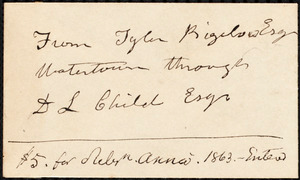 From Tyler Bigelow Esqr
Watertown through
D L Child Esqr
$5. for Rebn. Anna. 1863. - Entered